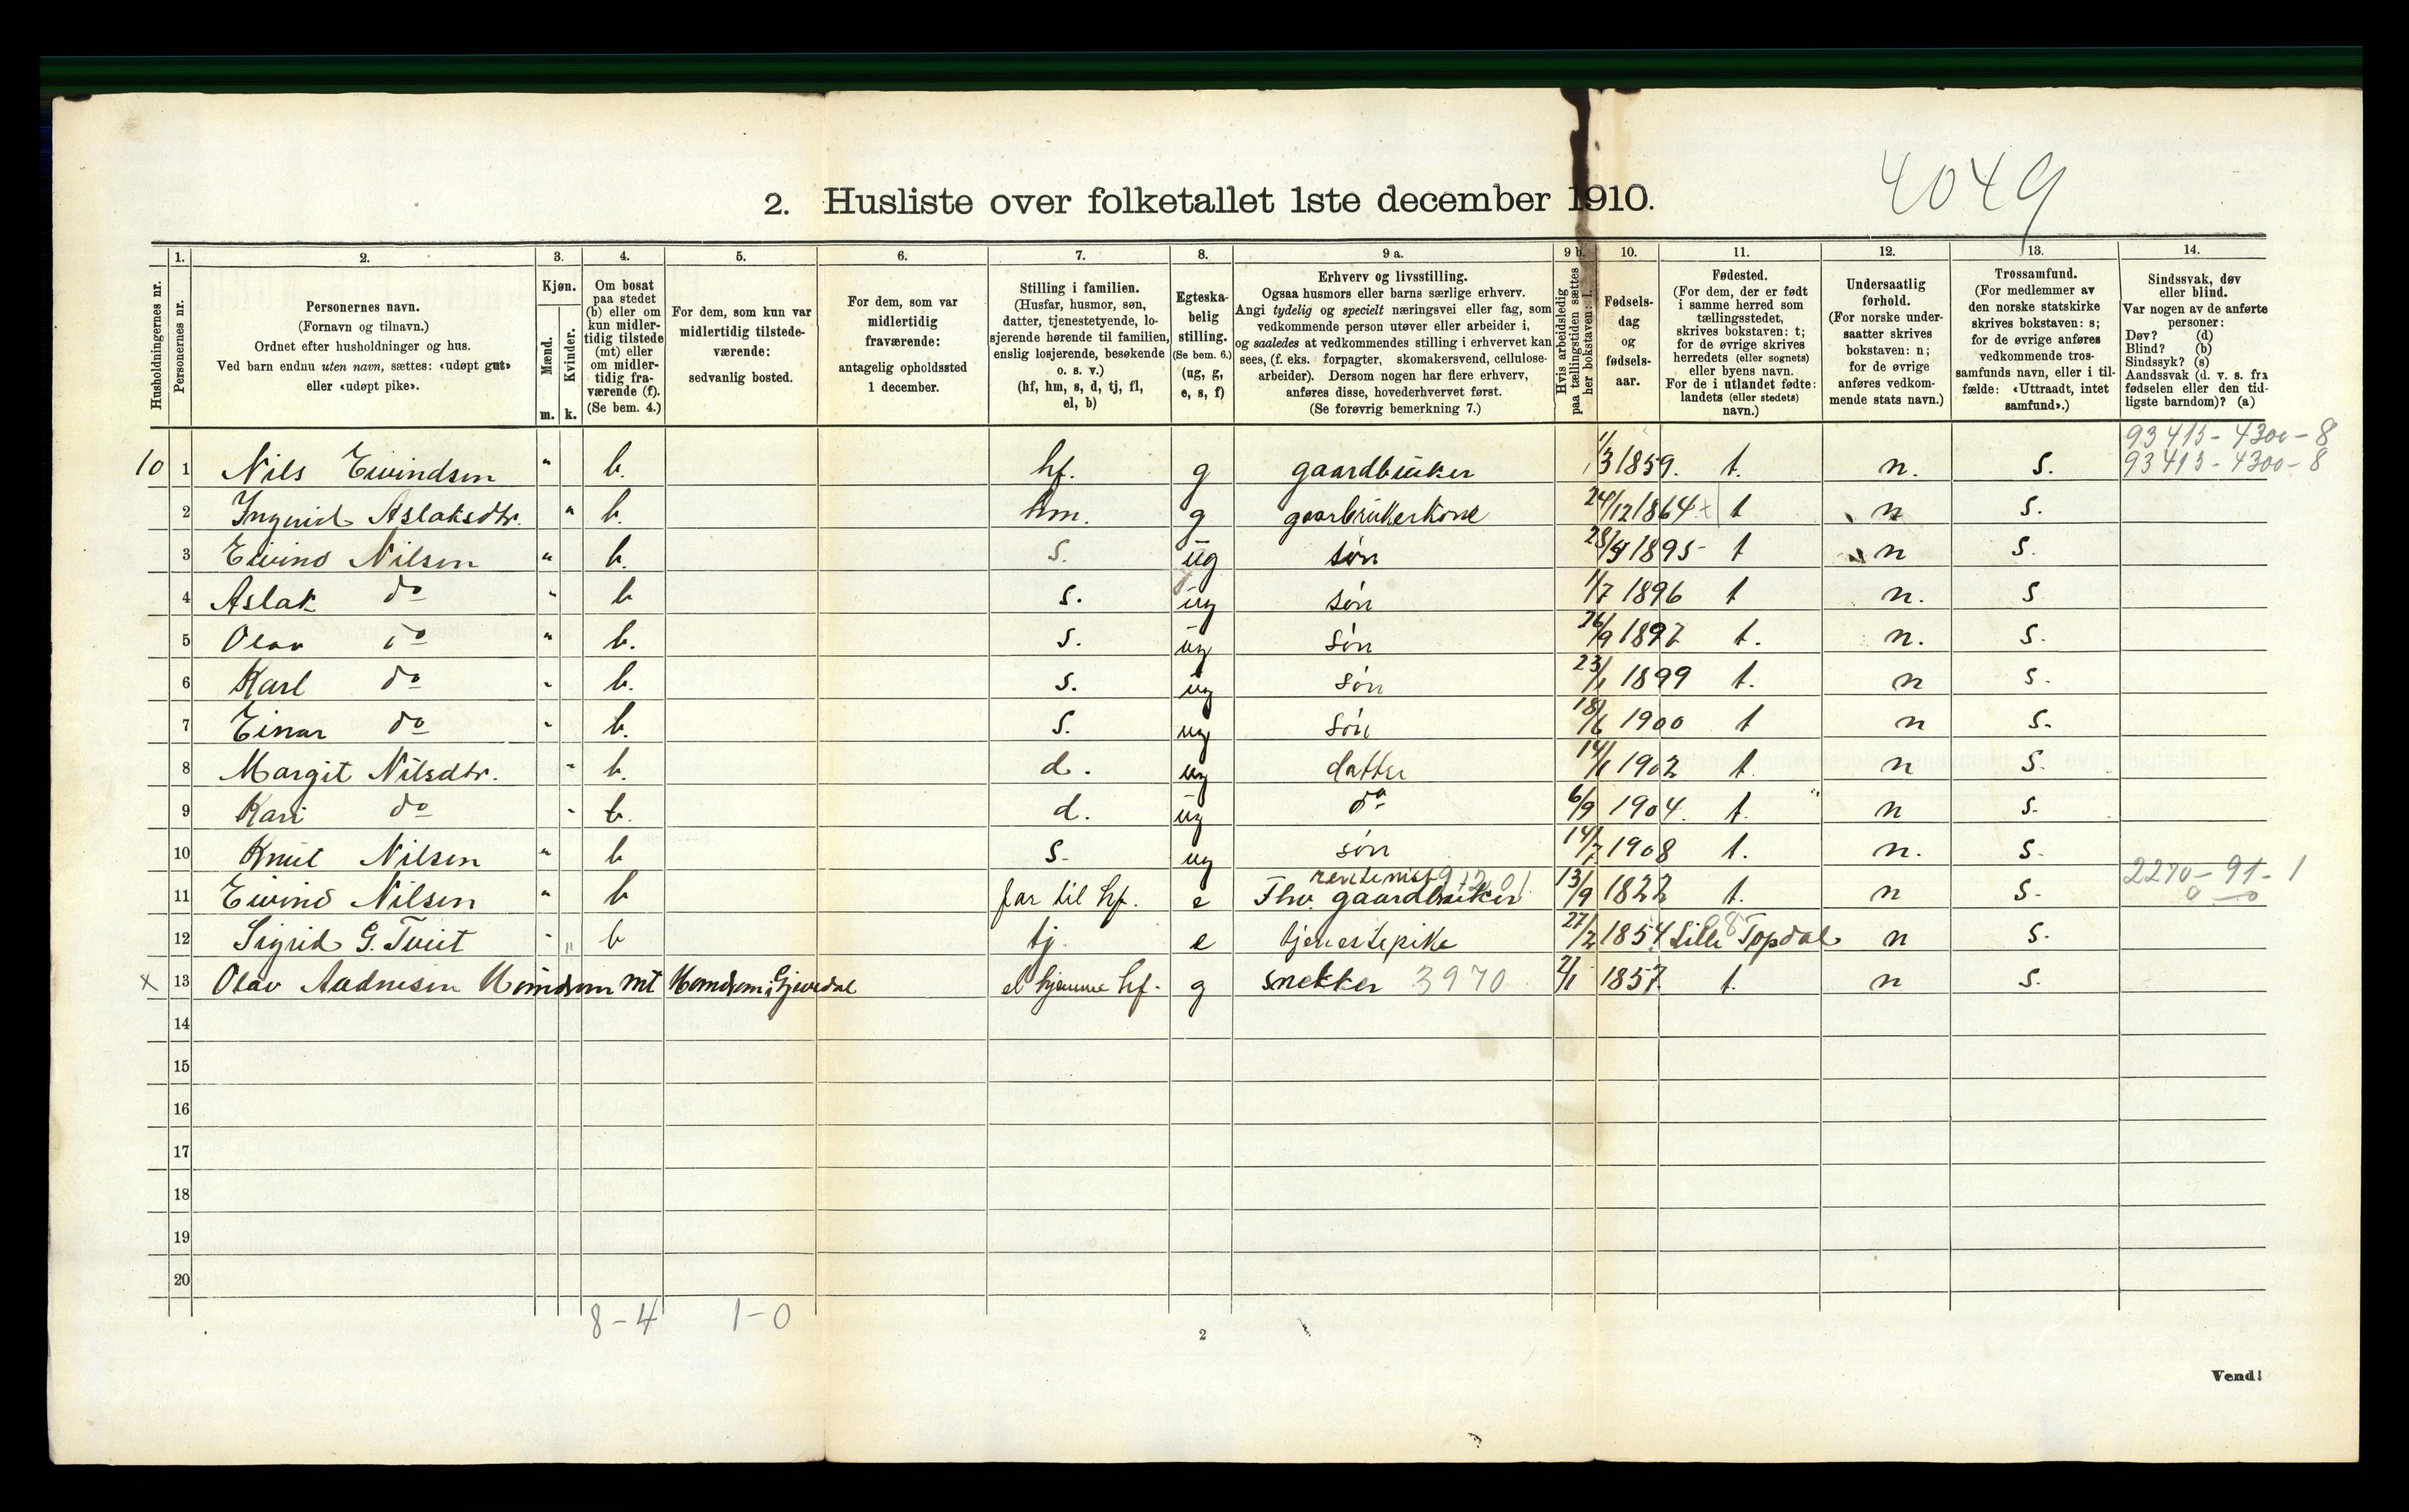 4049
2. Husliste over folketallet 1ste december 1910.
Husholdningernes nr.
1.
Personernes nr.
2.
Personernes navn.
(Fornavn og tilnavn.)
Ordnet efter husholdninger og hus.
Ved barn endnu uten navn, sættes: «udøpt gut»
eller «udøpt pike».
3.
Kjøn.
Mænd.
Kvinder.
m. k.
4.
Om bosat
paa stedet
(b) eller om
kun midler-
tidig tilstede
(mt) eller
om midler-
tidig fra-
værende (f).
(Se bem. 4.)
5.
For dem, som kun var
midlertidig tilstede-
værende:
sedvanlig bosted.
6.
For dem, som var
midlertidig
fraværende:
antagelig opholdssted
1 december.
7.
Stilling i familien.
(Husfar, husmor, søn,
datter, tjenestetyende, lo-
sjerende hørende til familien,
enslig losjerende, besøkende
o. s. v.)
(hf, hm, s, d, tj, fl,
el, b)
8.
Egteska-
belig
stilling.
(Se bem. 6.)
(ug, g,
e, s, f)
9 a.
Erhverv og livsstilling.
Ogsaa husmors eller barns særlige erhverv.
Angi tydelig og specielt næringsvei eller fag, som
vedkommende person utøver eller arbeider i,
og saaledes at vedkommendes stilling i erhvervet kan
sees, (f. eks. forpagter, skomakersvend, cellulose-
arbeider). Dersom nogen har flere erhverv,
anføres disse, hovederhvervet først.
(Se forøvrig bemerkning 7.)
9 b.
Hvis arbeidsledig
paa tællingstiden sættes
her bokstaven: l.
10.
Fødsels-
dag
og
fødsels-
aar.
11.
Fødested.
(For dem, der er født
i samme herred som
tællingsstedet,
skrives bokstaven: t;
for de øvrige skrives
herredets (eller sognets)
eller byens navn.
For de i utlandet fødte:
landets (eller stedets)
navn.)
12.
Undersaatlig
forhold.
(For norske under-
saatter skrives
bokstaven: n;
for de øvrige
anføres vedkom-
mende stats navn.)
13.
Trossamfund.
(For medlemmer av
den norske statskirke
skrives bokstaven: s;
for de øvrige anføres
vedkommende tros-
samfunds navn, eller i til-
fælde: «Uttraadt, intet
samfund».)
14.
Sindssvak, døv
eller blind.
Var nogen av de anførte
personer:
Døv? (d)
Blind? (b)
Sindssyk? (s)
Aandssvak (d. v. s. fra
fødselen eller den tid-
ligste barndom)? (a)
93413-4300-8
10 1 Nils Eivindsen " b. hf. g gaardbruker 1/3 1859. t. n. s. 93413-4300-8
2 Ingerid Aslaksdtr. " b. hm. g gaarbrukerkone 24/12 1864 x t n s.
3 Eivind Nilsen " b. s. ug søn t n s.
4 Aslak do " b s. ug søn 1/7 1896 t n. s
5 Olav do " b. s. ug søn 26/9 1897 t. n. s.
6 Karl do " b. s. ug søn 23/1 1899 t. n s.
7 Einar do " b. s. ug søn 18/6 1900 t n s.
8 Margit Nilsdtr. " b. d. ug datter 14/1 1902 t. n s.
9 Kari do " b. d. ug do 6/9 1904. t. n s.
10 Knut Nilsen " b s. ug søn 1908 t. n. s.
rentenist 91201 2270-91-1
11 Eivind Nilsen " b far til hf. e Fhv. gaardbruker 13/9 1822 t. n s. 0 — 0
12 Sigrid G. Tveit " b tj. e tjenestepike 27/2 1854 Lille Topdal 98 n s.
x 13 Olav Aadnesen mt Gjøvdal hf. g snekker 3970 2/1 1857 t. n s.
14
15
16
17
18
19
20
8-4 1-0
2
Vend!